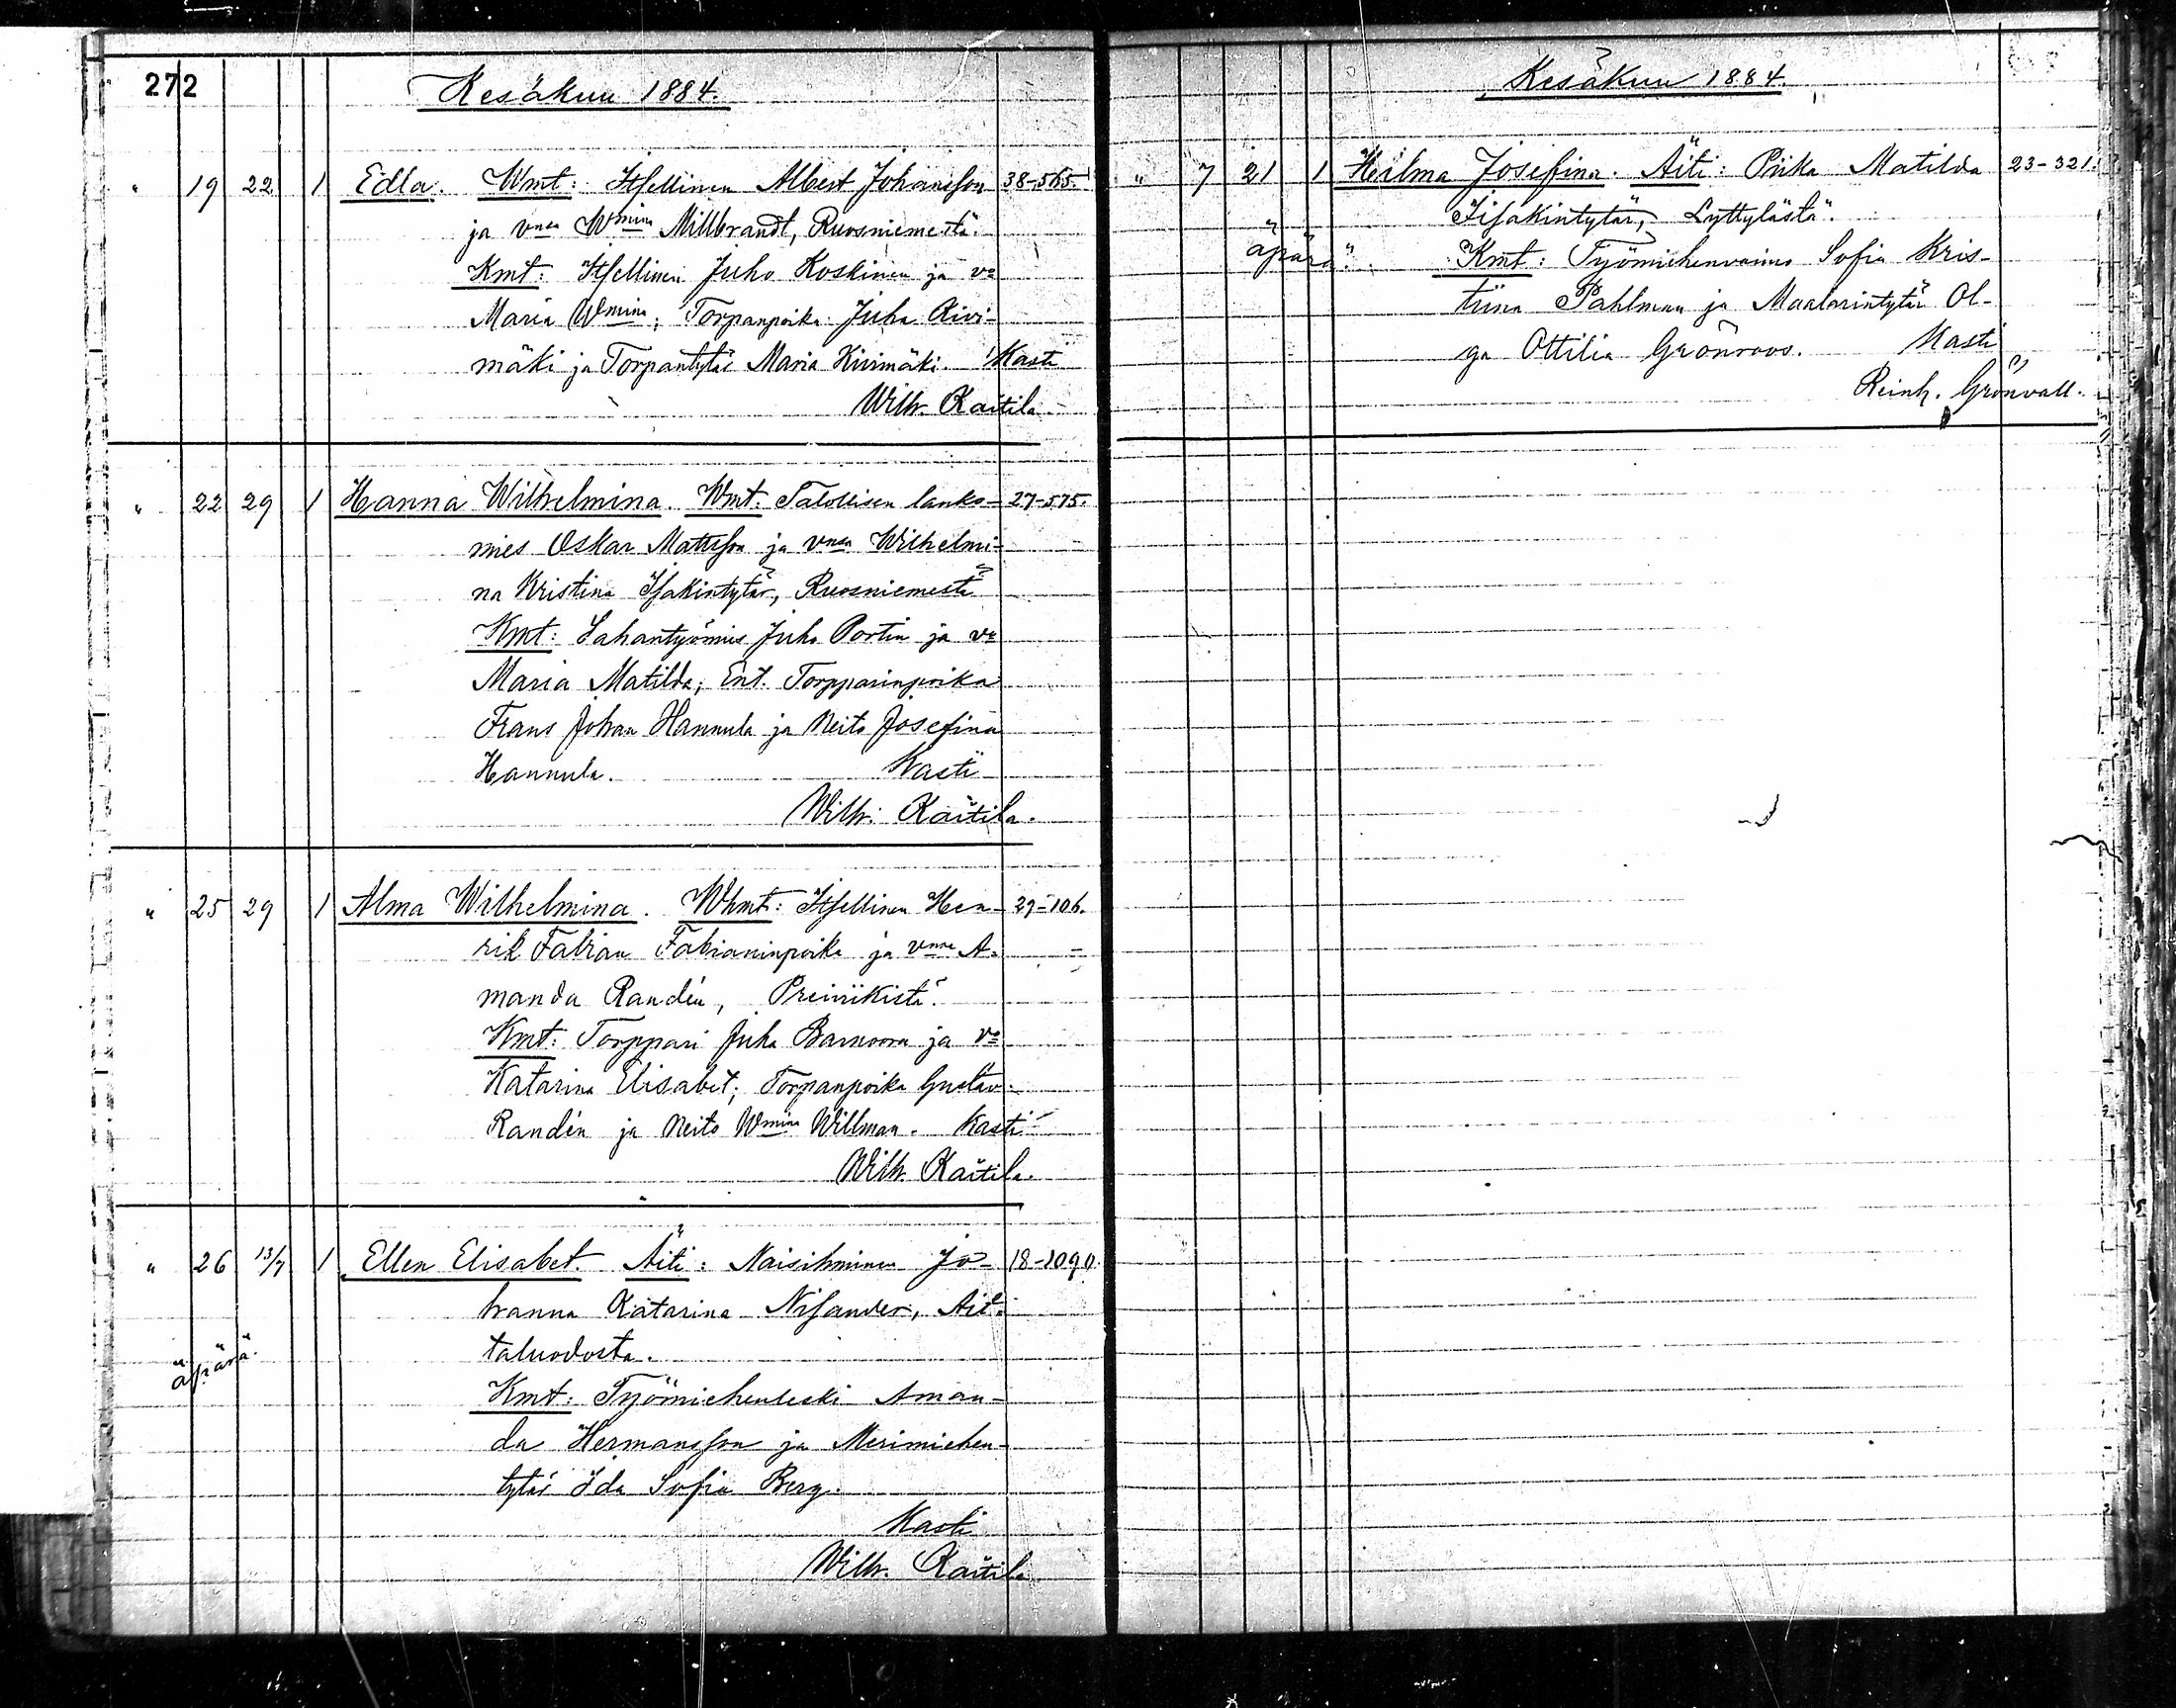 272
Kesäkuu 1884.
" 19 22 1 Edla. Wmt: Itsellinen Albert Johansson 38-565.
ja vnsa Wmina Millbrandt, Ruosniemestä.
Kmt: Itsellinen Juho Koskinen ja vo
Maria Wmina; Torpanpoika Juha Kivi-
mäki ja Torpantytär Maria Kivimäki. Kasti
Wilh. Kaitila.
" 22 29 1 Hanna Wilhelmina. Wmt: Talollisen lanko- 27-575.
mies Oskar Mattsson ja vnsa Wilhelmi-
na Kristina Isakintytär, Ruosniemestä
Kmt: Sahantyömies Juho Portin ja vo
Maria Matilda; Ent. Torpparinpoika
Frans Johan Hannula ja Neito Josefina
Hannula. Kasti
Wilh. Kaitila.
" 25 29 1 Alma Wilhelmina. Whmt: Itsellinen Hen- 29-106.
rik Fabian Fabianinpoika ja vnsa A-
manda Randén, Preiviikistä.
Kmt: Torppari Juha ja vo
Katarina Elisabet; Torpanpoika Gustav
Randén ja Neito Wmina Willman. Kasti
Wilh. Kaitila.
" 26 13/7 1 Ellen Elisabet. Äiti: Naisihminen Jo- 18-1090.
hanna Katarina Nisander, Ait-
taluodosta.
äpärä.
Kmt: Työmiehenleski Aman-
da Hermansson ja Merimiehen-
tytär Ida Sofia Berg.
Kasti
Wilh. Kaitila
Kesäkuu 1884.
" 7 21 1 Hilma Josefina. Äiti: Piika Matilda 23-321.
Iisakintytär, Lyttylästä.
äpärä. Kmt: Työmiehenvaimo Sofia Kris-
tiina Pahlman ja Maalarintytär Ol-
ga Ottilia Grönroos. Kasti
Reinh. Grönvall.